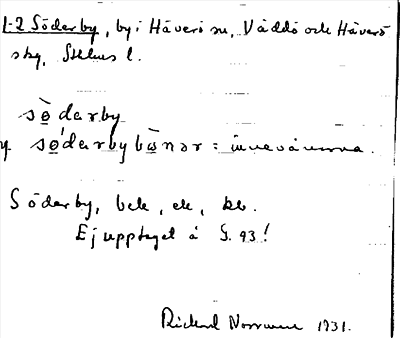 1-2 Söderby, by i Häverö sn, Väddö och Häverö
skg, Sthlms l.
sø̀darby
sǿdarbybø̀nər = innevånarna.
Söderby, bek, ek, kb.
Ej upptaget å S. 93!
Rickard Norrman 1931.